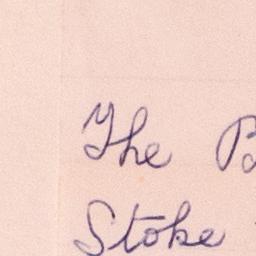 The
Stoke